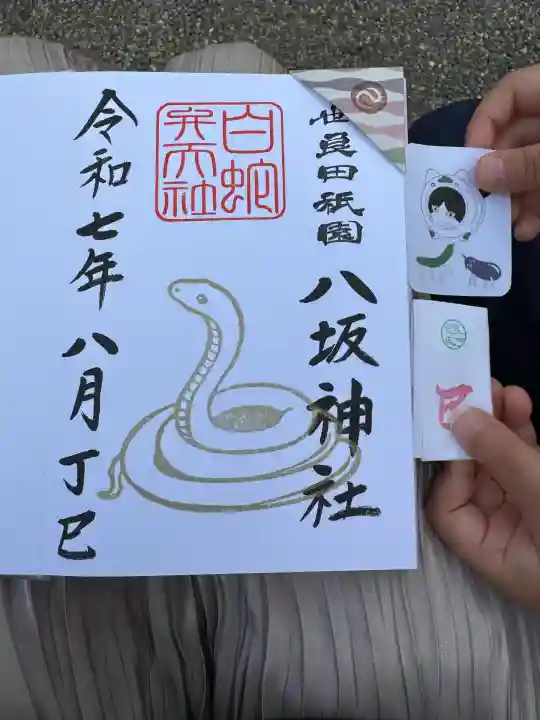 世良田祇園
八坂神社
白蛇
弁天社
令和七年八月丁巳
巳